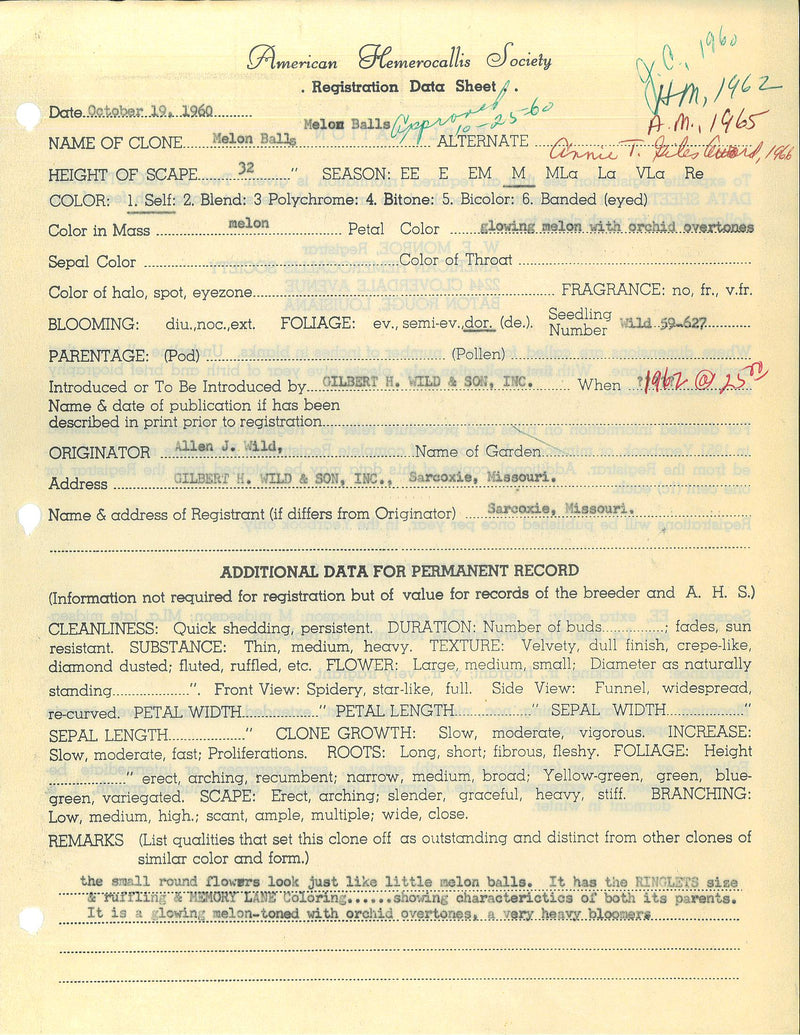 American Hemerocallis Society
. Registration Data Sheet . .
J.C., 1960
H.M., 1962
A.M., 1965
Annie T. Giles Award, 1966
Date October 19, 1960
Melon Balls
Approved 10-25-60
NAME OF CLONE Melon Balls ALTERNATE
HEIGHT OF SCAPE 32 " SEASON: EE E EM M MLa La VLa Re
COLOR: 1. Self: 2. Blend: 3 Polychrome: 4. Bitone: 5. Bicolor: 6. Banded (eyed)
Color in Mass melon Petal Color glowing melon with orchid overtones
Sepal Color Color of Throat
Color of halo, spot, eyezone FRAGRANCE: no, fr., v.fr.
BLOOMING: diu.,noc.,ext. FOLIAGE: ev., semi-ev.,dor. (de.). Seedling Number Wild 59-627
PARENTAGE: (Pod) (Pollen)
Introduced or To Be Introduced by GILBERT H. WILD & SON, INC. When 1962 @ 25.00
Name & date of publication if has been
described in print prior to registration
ORIGINATOR Allen J. Wild, Name of Garden
Address GILBERT H. WILD & SON, INC., Sarcoxie, Missouri.
Name & address of Registrant (if differs from Originator) Sarcoxie, Missouri.
ADDITIONAL DATA FOR PERMANENT RECORD
(Information not required for registration but of value for records of the breeder and A. H. S.)
CLEANLINESS: Quick shedding, persistent. DURATION: Number of buds..............; fades, sun
resistant. SUBSTANCE: Thin, medium, heavy. TEXTURE: Velvety, dull finish, crepe-like,
diamond dusted; fluted, ruffled, etc. FLOWER: Large, medium, small; Diameter as naturally
standing..................". Front View: Spidery, star-like, full. Side View: Funnel, widespread,
re-curved. PETAL WIDTH.................." PETAL LENGTH.................." SEPAL WIDTH.................."
SEPAL LENGTH.................." CLONE GROWTH: Slow, moderate, vigorous. INCREASE:
Slow, moderate, fast; Proliferations. ROOTS: Long, short; fibrous, fleshy. FOLIAGE: Height
.................." erect, arching, recumbent; narrow, medium, broad; Yellow-green, green, blue-
green, variegated. SCAPE: Erect, arching; slender, graceful, heavy, stiff. BRANCHING:
Low, medium, high.; scant, ample, multiple; wide, close.
REMARKS (List qualities that set this clone off as outstanding and distinct from other clones of
similar color and form.)
the small round flowers look just like little melon balls. It has the RINGLETS size
& ruffling & MEMORY LANE Coloring......showing characterictics of both its parents.
It is a glowing melon-toned with orchid overtones, a very heavy bloomers